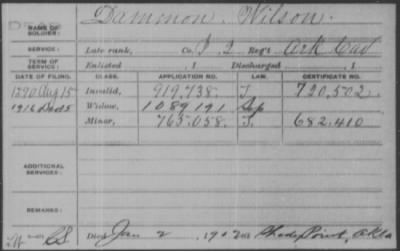 NAME OF SOLDIER: Dammon, Wilson.
SERVICE: Late rank, Co. I, 2 Reg't Ark Cav
TERM OF SERVICE: Enlisted , 1 Discharged , 1
DATE OF FILING. CLASS. APPLICATION NO. LAW. CERTIFICATE NO.
1890 Aug 15 Invalid, 919,738. J. 720,502.
1916 Dec 5 Widow, 1089191 Sep
Minor, 765.058. J. 682.410
ADDITIONAL SERVICES:
REMARKS:
Died Jan 2, 1902 at Shady Point, Okla